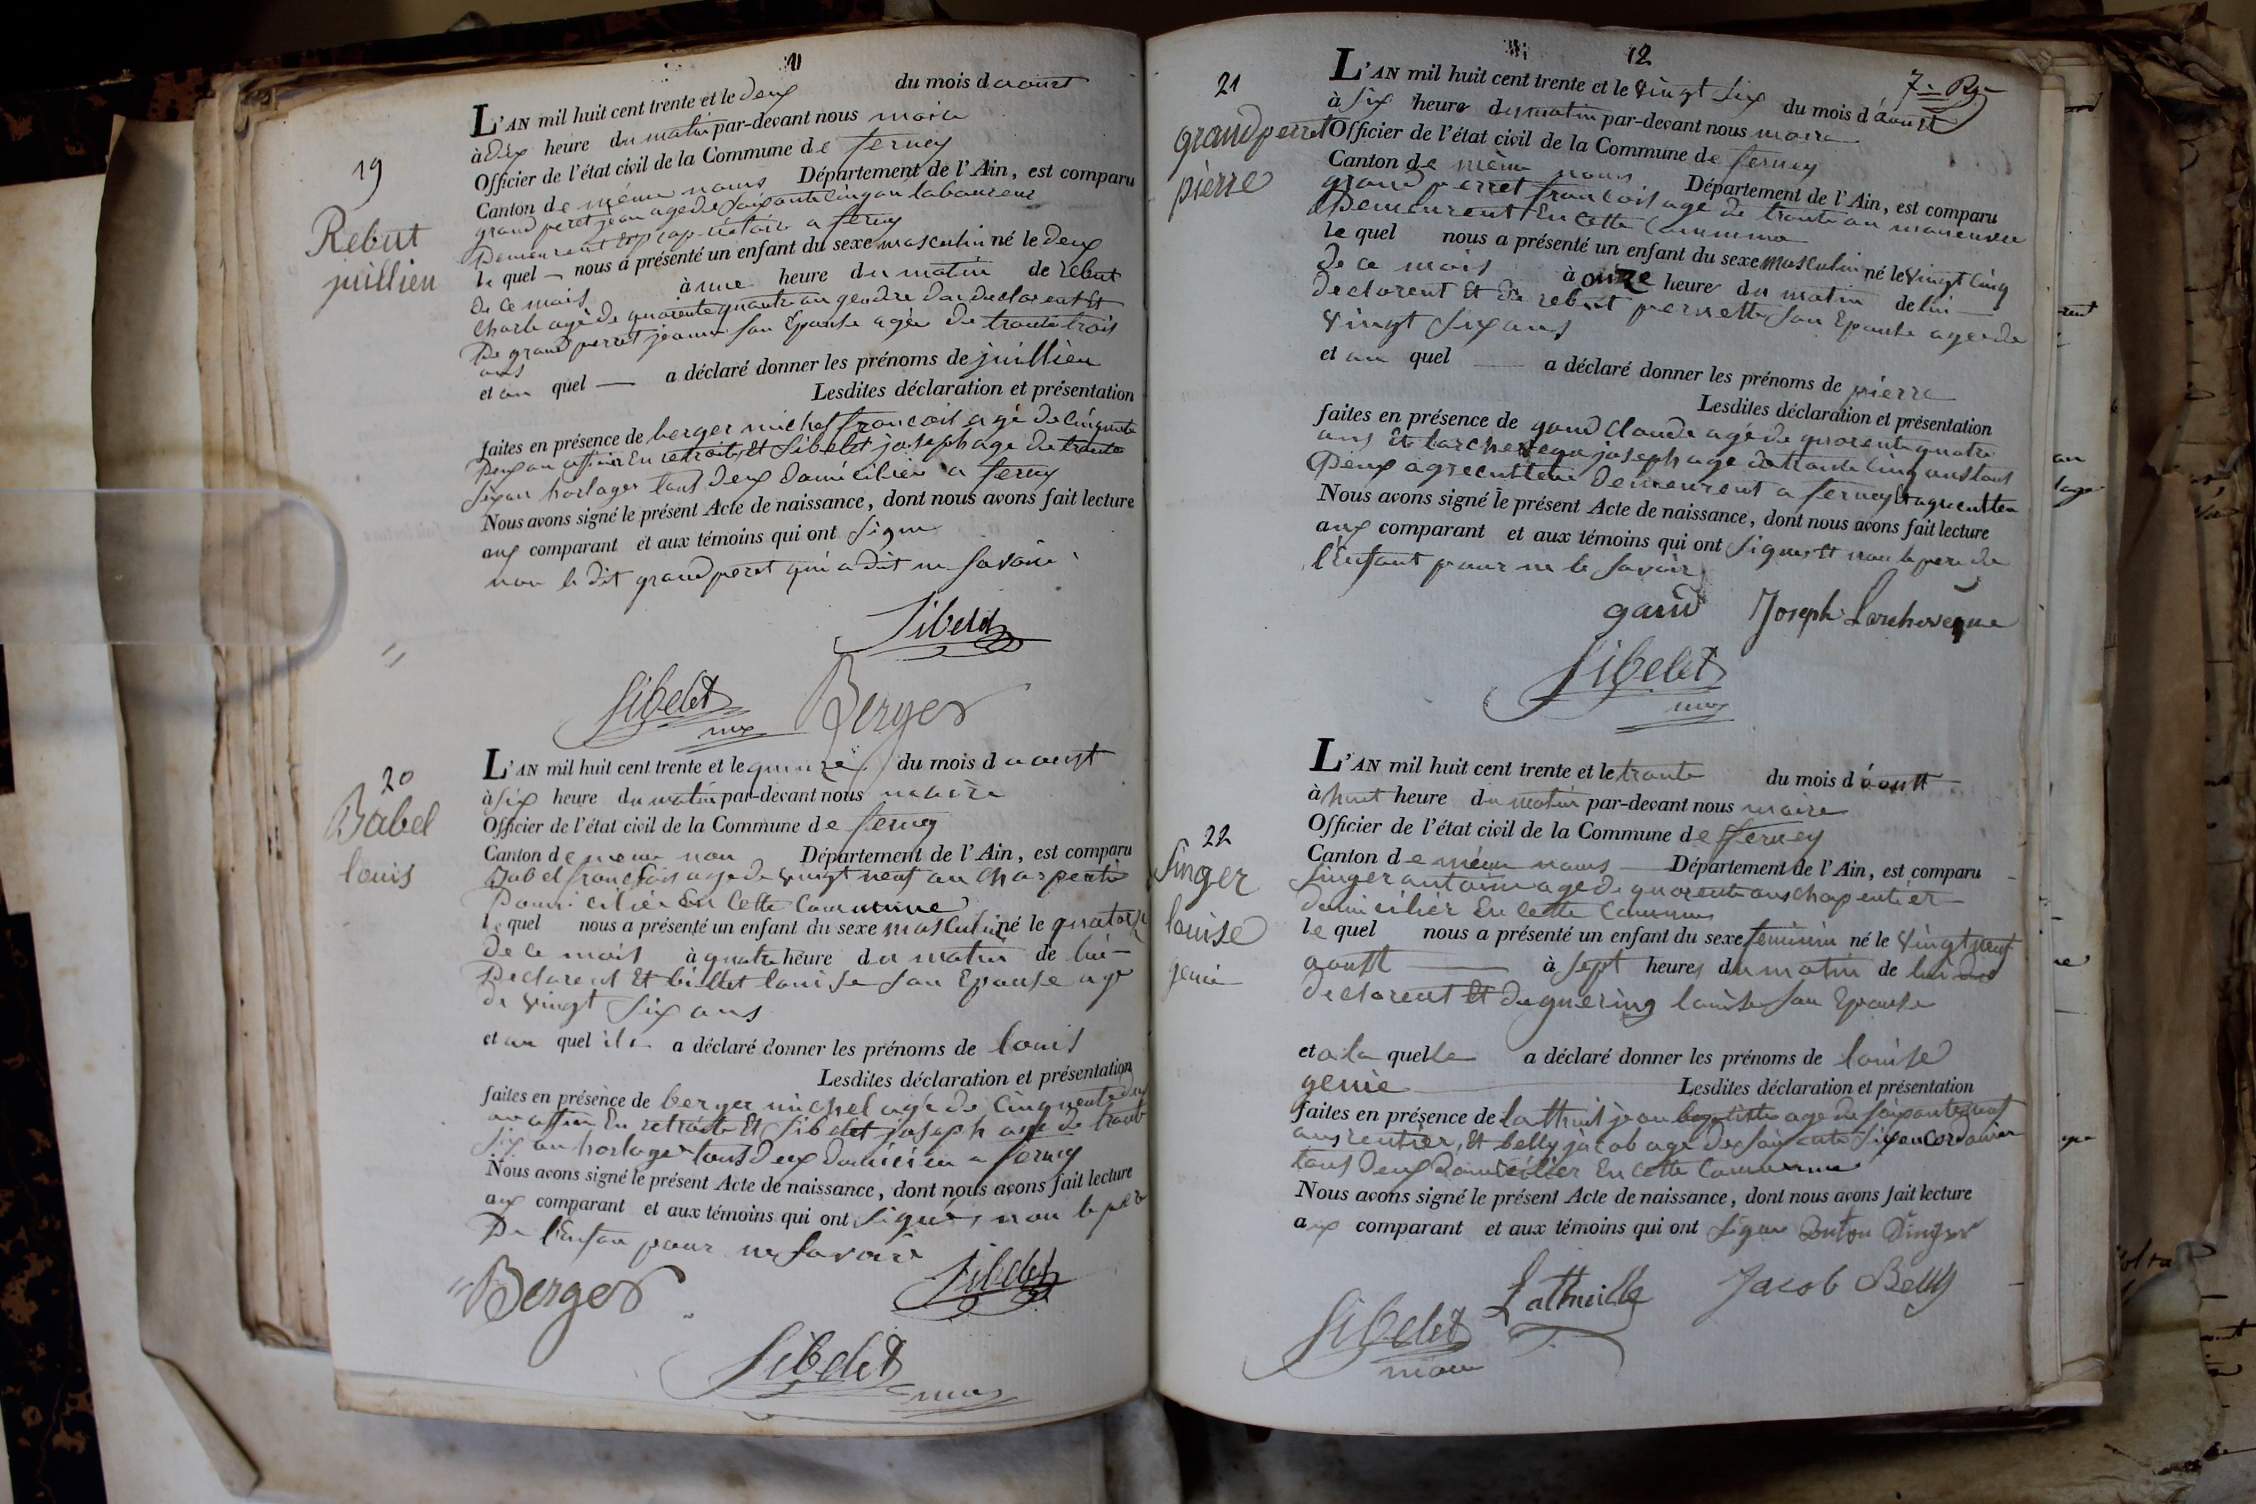 11
L'AN mil huit cent trente et le deux du mois d aoust
à dix heure du matin par-devant nous maire
Officier de l'état civil de la Commune de ferney
Canton de même nous Département de l'Ain, est comparu
grand peret jean age de soixante cinq an laboureur
Demeurent propriétaire a ferney
le quel — nous a présenté un enfant du sexe masculin né le deux
de ce mois à une heure du matin de rebut
charle agé de quarente quatre an gendre du declarent Et
De grand perret jeanne son Epouse agée de trante trois
ans
et au quel — a déclaré donner les prénoms de juillien
Lesdites déclaration et présentation
faites en présence de berger michel francois agé de cinquante
Deux an officier En retraite Et Sibelet joseph age de trante
six an horloger tous deux domicilié a ferney
Nous avons signé le présent Acte de naissance, dont nous avons fait lecture
aux comparant et aux témoins qui ont signe
non le dit grand peret qui a dit ne savoir
19
Rebut
juillien
Sibelet
Sibelet Berger
20
Babel
louis
L'AN mil huit cent trente et le quinze du mois d aoust
à six heure du matin par-devant nous maire
Officier de l'état civil de la Commune de ferney
Canton de meme nou Département de l'Ain, est comparu
Babel francois age de vingt neuf an charpentié
Domicilié En Cette Commune
le quel nous a présenté un enfant du sexe masculin né le quatorze
de ce mois à quatre heure du matin de lui —
Declarent Et billet louise son Epouse age
de vingt six ans
et au quel il a déclaré donner les prénoms de louis
Lesdites déclaration et présentation
faites en présence de berger michel agé de cinquante deux
an officier En retraite Et Sibelet joseph age de trante
six an horloger tous deux a ferney
Nous avons signé le présent Acte de naissance, dont nous avons fait lecture
aux comparant et aux témoins qui ont signés non le père
De l'Enfan pour ne savoir
Berger Sibelet
Sibelet
12
21
grandperret
pierre
L'AN mil huit cent trente et le vingt six du mois d'aoust
à six heure du matin par-devant nous maire
Officier de l'état civil de la Commune de ferney
Canton de même nous Département de l'Ain, est comparu
grand perret francois age de trante an
Demeurent En cette Commune
le quel nous a présenté un enfant du sexe masculin né le vingt cinq
de ce mois à onze heure du matin de lui —
declarent Et de rebut pernette son Epouse agee de
vingt six ans
et au quel — a déclaré donner les prénoms de pierre
Lesdites déclaration et présentation
faites en présence de gaud claude agé de quarente quatre
ans Et larcheveque joseph age de trante cinq ans tous
Deux agreculteur Demeurent a ferney
Nous avons signé le présent Acte de naissance, dont nous avons fait lecture
aux comparant et aux témoins qui ont signes Et non le pere de
l'Enfant pour ne le savoir
gaud Joseph Larcheveque
Sibelet
22
Singer
louise
genie
L'AN mil huit cent trente et le trante du mois d'aoust
à huit heure du matin par-devant nous maire
Officier de l'état civil de la Commune de ferney
Canton de même nous Département de l'Ain, est comparu
Singer antoine age de quarente ans chapentier
domicilier En cette Commune
le quel nous a présenté un enfant du sexe feminin né le vingt neuf
aoust — à sept heures du matin de lui dit
declarent Et de louise son Epouse
et a la quelle a déclaré donner les prénoms de louise
genie Lesdites déclaration et présentation
faites en présence de jean age de soixante neuf
ans rentier, Et belly jacob age de soixante six an cordonier
tous deux domicilier En cette Commune
Nous avons signé le présent Acte de naissance, dont nous avons fait lecture
aux comparant et aux témoins qui ont signe Anton Singer
Lathuille Jacob Belly
Sibelet
maire